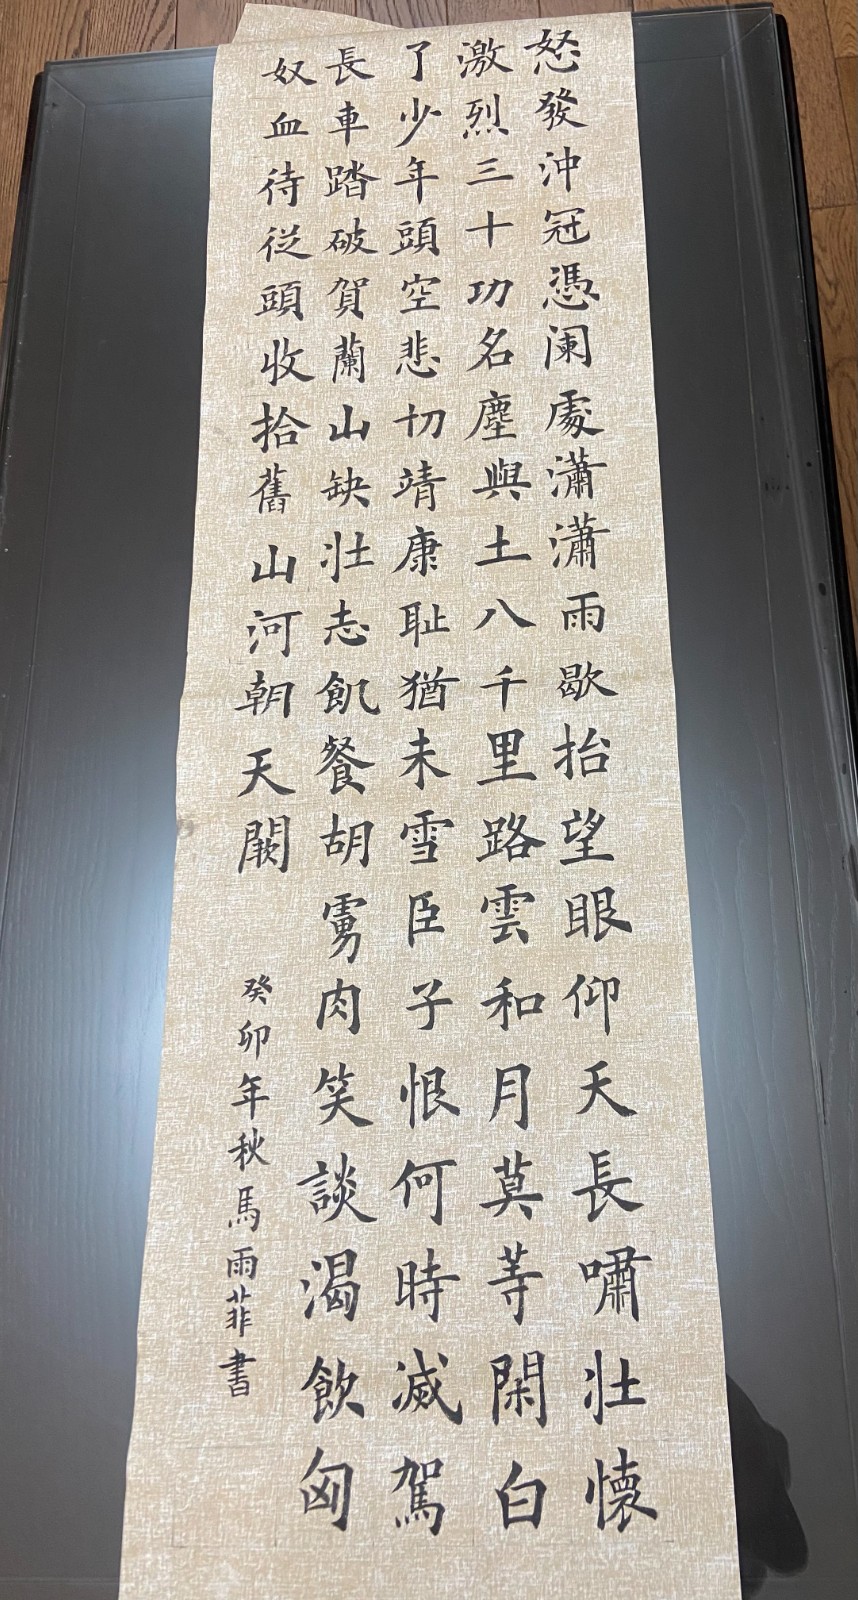 怒發沖冠憑闌處瀟瀟雨歇抬望眼仰天長嘯壯懷
激烈三十功名塵與土八千里路雲和月莫等閑白
了少年頭空悲切靖康恥猶未雪臣子恨何時滅駕
長車踏破賀蘭山缺壯志飢餐胡虜肉笑談渴飲匈
奴血待從頭收拾舊山河朝天闕
癸卯年秋馬雨菲書